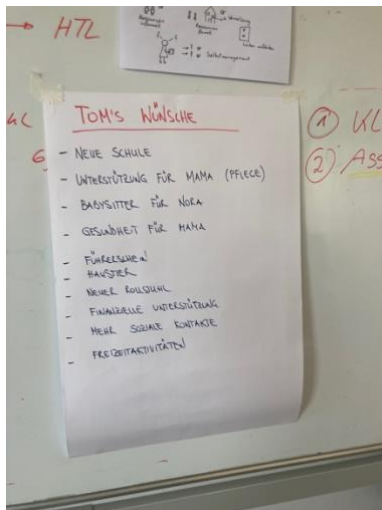 → HTL
Selbstmanagement
TOM'S WÜNSCHE
- NEUE SCHULE
- UNTERSTÜTZUNG FÜR MAMA (PFLEGE)
- BABYSITTER FÜR NORA
- GESUNDHEIT FÜR MAMA
- FÜHRERSCHEIN
- HAUSTIER
- NEUER ROLLSTUHL
- FINANZIELLE UNTERSTÜTZUNG
- MEHR SOZIALE KONTAKTE
- FREIZEITAKTIVITÄTEN
1 KL
2 ASS